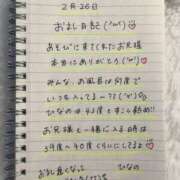 2月26日
およし日記(''ω'')
あそびに来てくれたお兄様
本当にありがとう(''ω'')♡
みんな、お風呂は何度で
いつも入ってる〜??('ω')
ひなのは42度とすこし熱め!!
お兄様と一緒に入る時は
39度〜40度くらいにしてるよ♡
ひなの